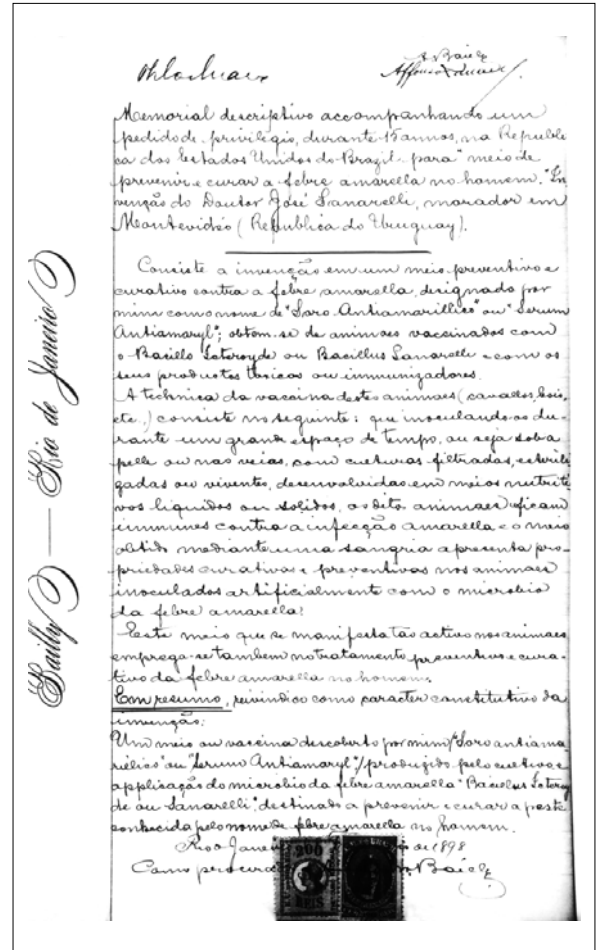 A Baily
Affonso
Memorial descriptivo accompanhando um
pedido de privilegio, durante 15 annos, na Republi
ca dos Estados Unidos do Brazil para "meio de
prevenir e curar a febre amarella no homem." In
venção do Doutor José Sanarelli, morador em
Montevidéo (Republica do Uruguay).
Consiste a invenção em um meio preventivo e
curativo contra a febre amarella, designado por
mim com o nome de "Soro Antiamarillico" ou "Serum
Antiamaryl"; obtem-se de animaes vaccinados com
o Bacillo Icteroyde ou Bacillus Sanarelli e com os
seus productos toxicos ou immunizadores.
A technica da vaccina destes animaes (cavallos, bois,
etc.) consiste no seguinte: que inoculando-os du-
rante um grande espaço de tempo, ou seja sob a
pelle ou nas veias, com culturas filtradas, esterili
zadas ou viventes, desenvolvidas em meios nutriti
vos liquidos ou solidos, os ditos animaes ficam
immunes contra a infecção amarella e o meio
obtido mediante uma sangria apresenta pro-
priedades curativas e preventivas nos animaes
inoculados artificialmente com o microbio
da febre amarella.
Este meio que se manifesta tão activo nos animaes
emprega-se tambem no tratamento preventivo e cura-
tivo da febre amarella no homem.
Em resumo, reivindico como caracter constitutivo da
invenção:
Um meio ou vaccina descoberto por mim ("Soro antiama
rillico" ou "Serum Antiamaryl") produzido pelo cultivo e
applicação do microbio da febre amarella "Bacillus Icteroy
de ou Sanarelli", destinado a prevenir e curar a peste
conhecida pelo nome de febre amarella no homem.
Rio de Janeiro de 1898
Como procurador Baily
200
REIS
Bailly — Rio de Janeiro